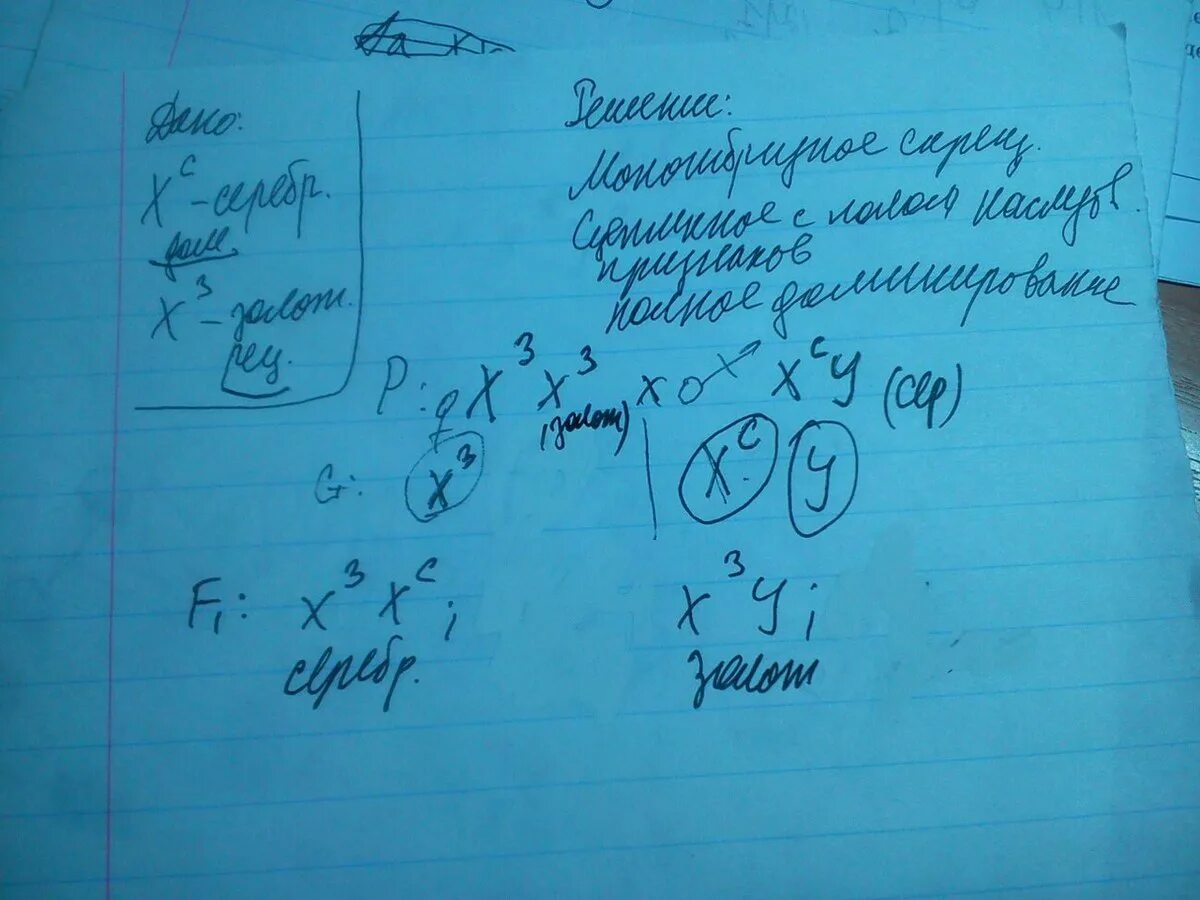 Дано:
X^С – серебр.
дом
X^З – золот.
рец.
Решение:
Моногибридное скрещ.
Сцепленное с полом наследов.
признаков
полное доминирование
P: ♀ X^З X^З x ♂ X^С У (сер)
(золот)
G: X^З | X^С У
F₁: X^З X^С; X^З У;
серебр. золот